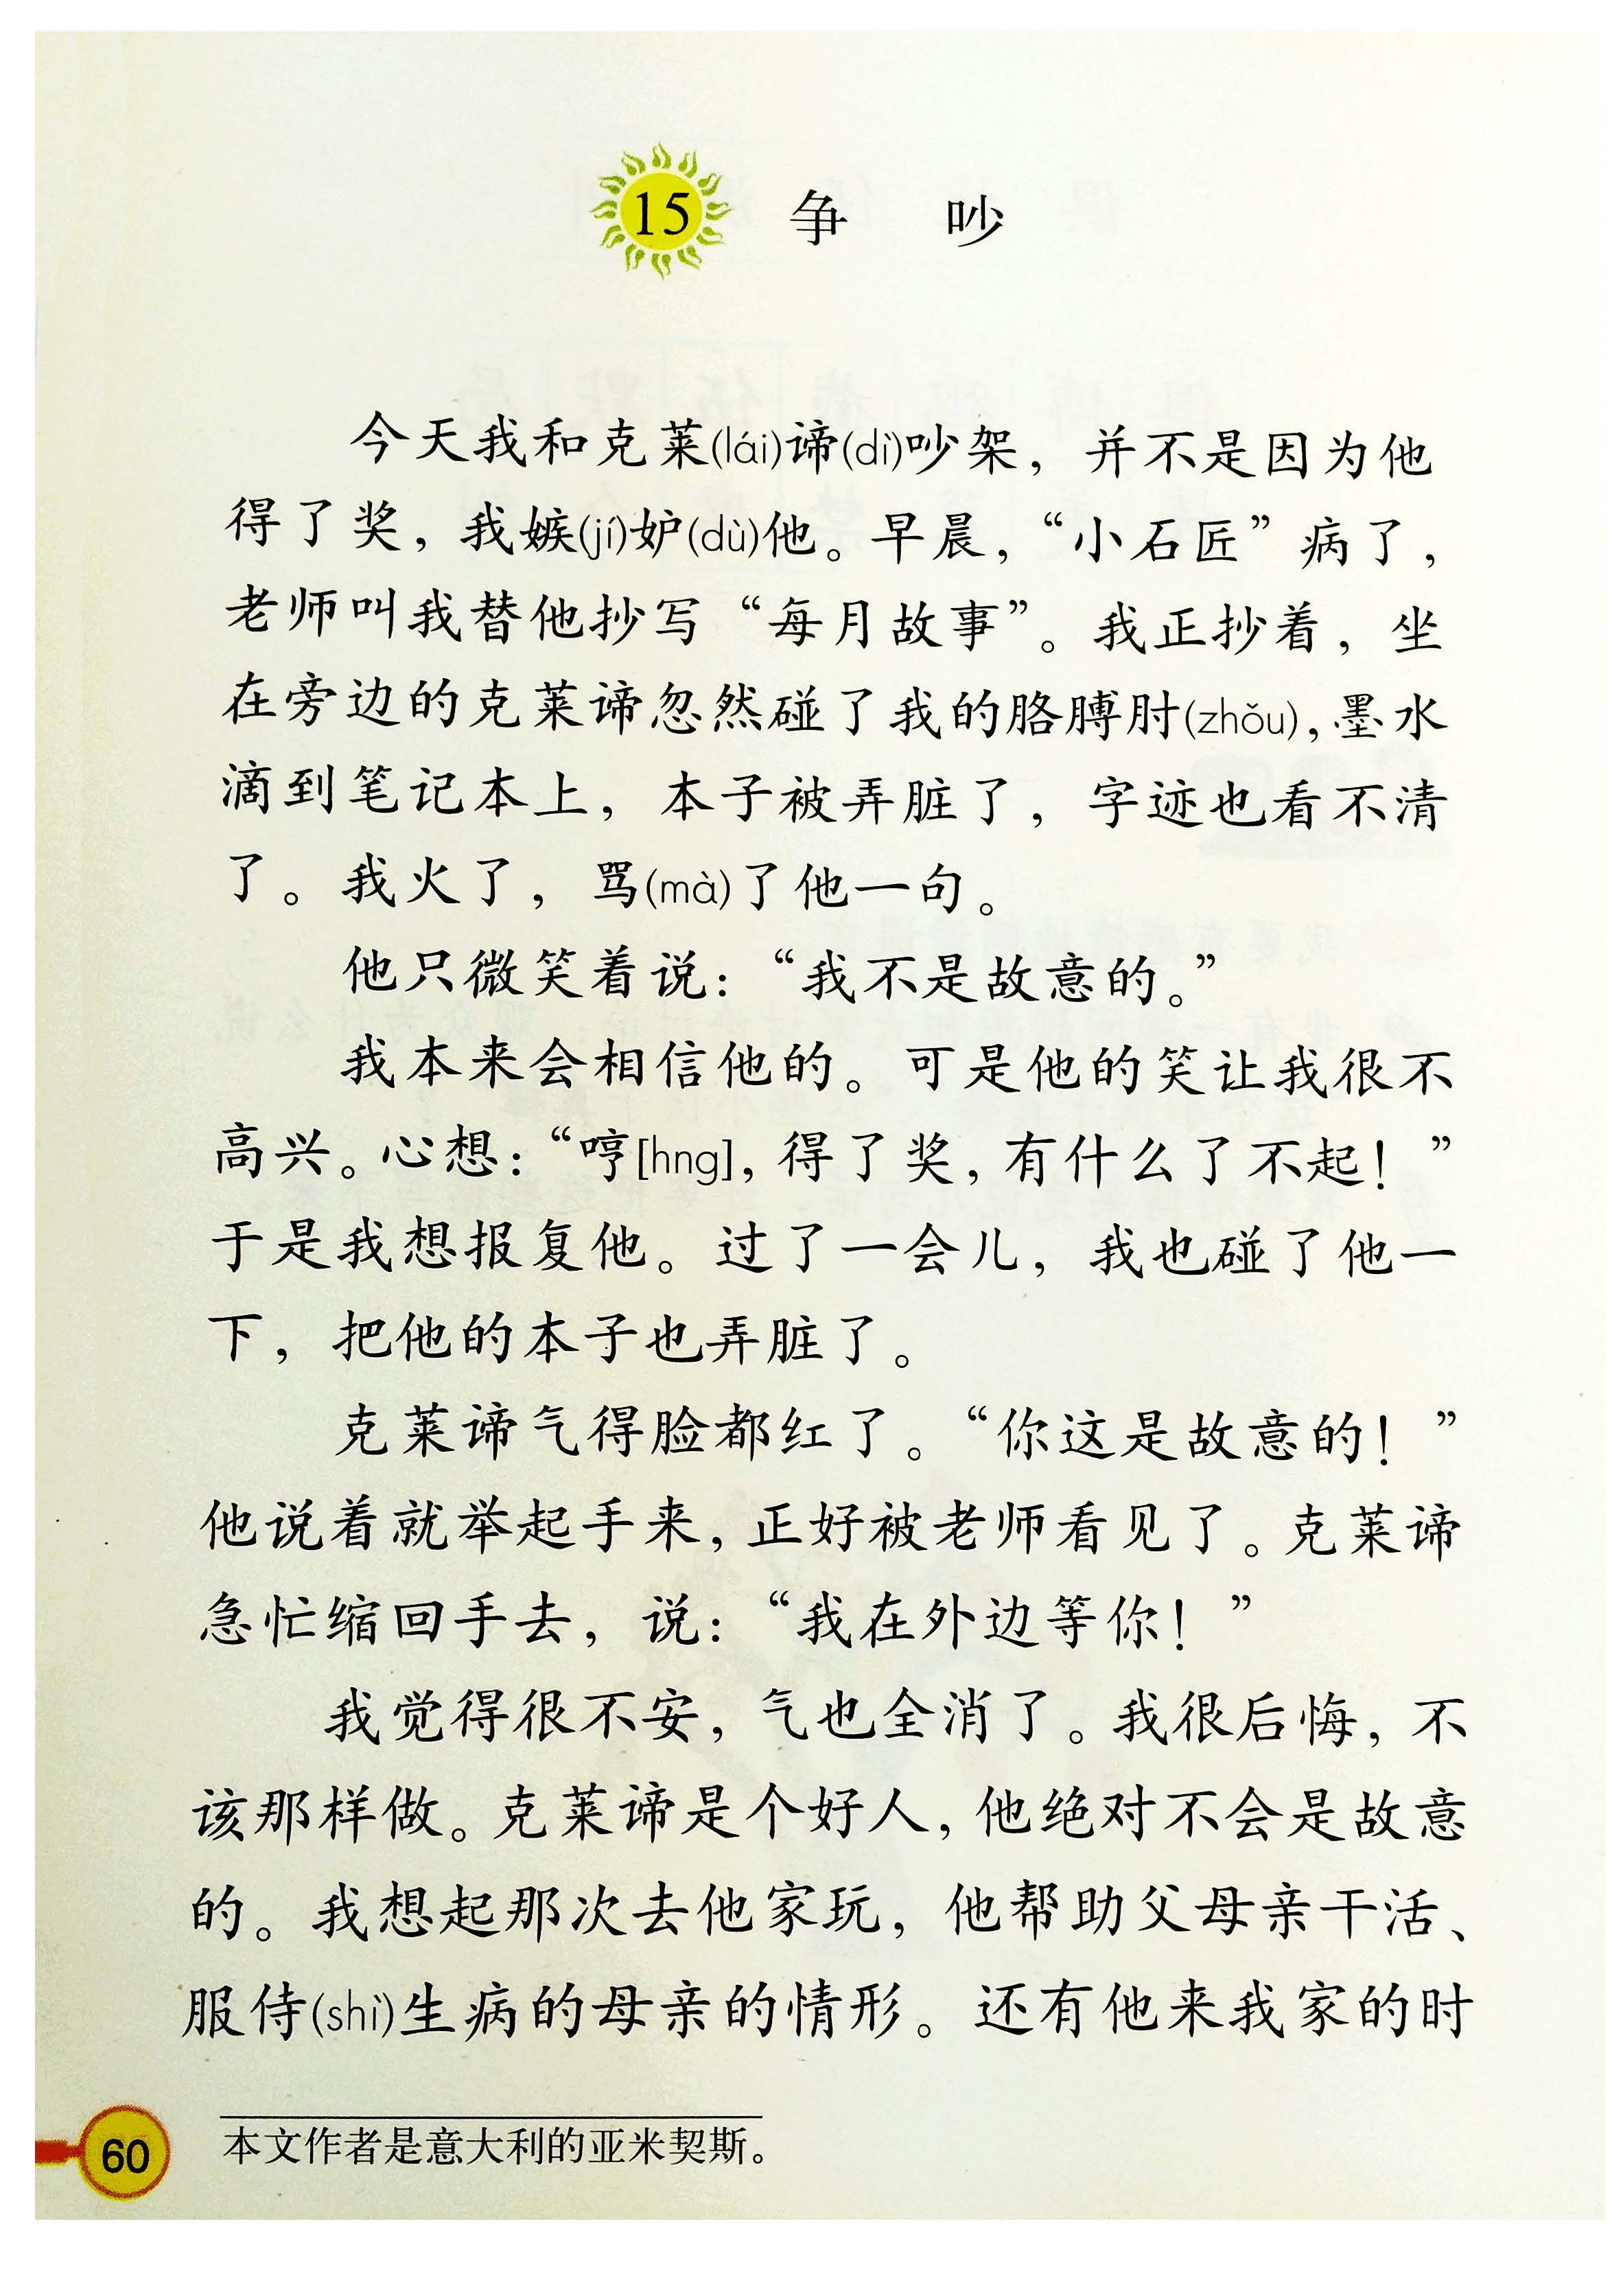 15 争 吵
今天我和克莱(lái)谛(dì)吵架，并不是因为他
得了奖，我嫉(jí)妒(dù)他。早晨，“小石匠”病了，
老师叫我替他抄写“每月故事”。我正抄着，坐
在旁边的克莱谛忽然碰了我的胳膊肘(zhǒu)，墨水
滴到笔记本上，本子被弄脏了，字迹也看不清
了。我火了，骂(mà)了他一句。
他只微笑着说：“我不是故意的。”
我本来会相信他的。可是他的笑让我很不
高兴。心想：“哼[hng]，得了奖，有什么了不起！”
于是我想报复他。过了一会儿，我也碰了他一
下，把他的本子也弄脏了。
克莱谛气得脸都红了。“你这是故意的！”
他说着就举起手来，正好被老师看见了。克莱谛
急忙缩回手去，说：“我在外边等你！”
我觉得很不安，气也全消了。我很后悔，不
该那样做。克莱谛是个好人，他绝对不会是故意
的。我想起那次去他家玩，他帮助父母亲干活、
服侍(shì)生病的母亲的情形。还有他来我家的时
本文作者是意大利的亚米契斯。
60